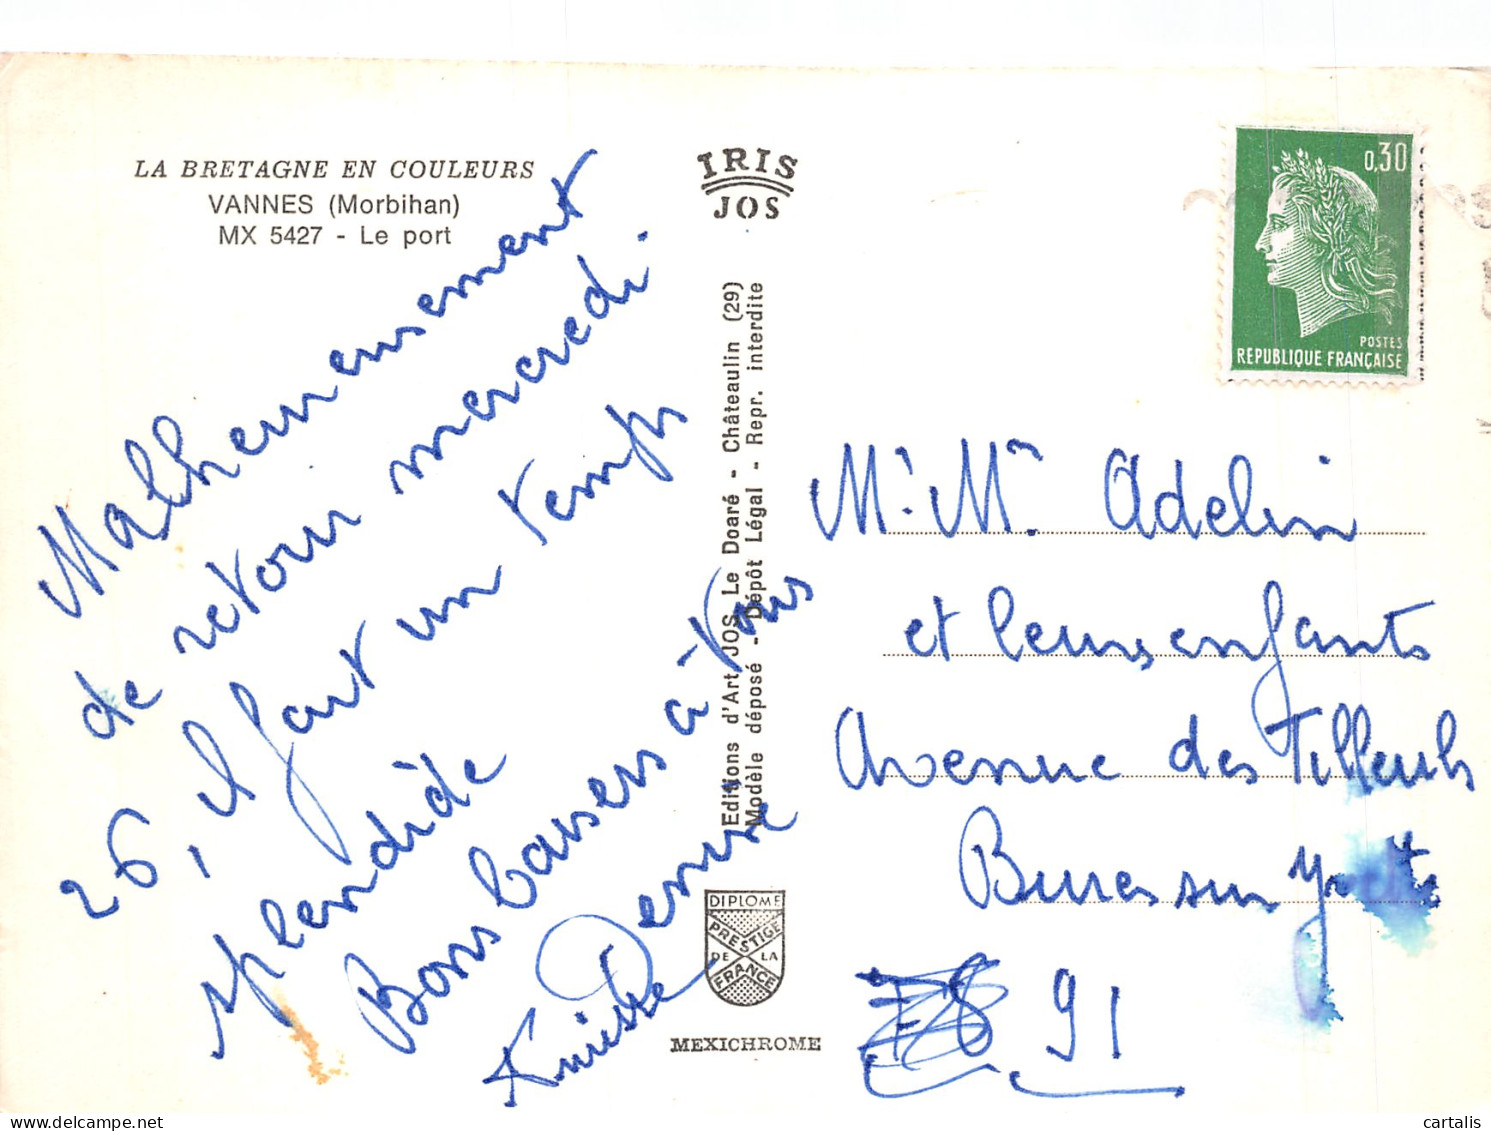 LA BRETAGNE EN COULEURS
VANNES (Morbihan)
MX 5427 - Le port
IRIS
JOS
0,30
POSTES
REPUBLIQUE FRANÇAISE
Malheureusement
de retour mercredi
26, il fait un temps
splendide
Bons baisers à tous
Denise
Editions d'Art JOS Le Doaré - Châteaulin (29)
Modèle déposé - Dépôt Légal - Repr. interdite
DIPLOME
PRESTIGE
DE LA
FRANCE
MEXICHROME
M. Mme Adelin
et leurs enfants
Avenue des Tilleuls
Bures sur Yvette
91
cartalis